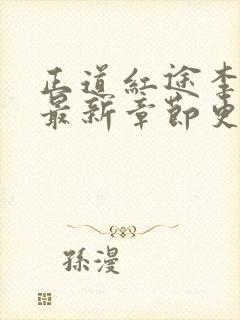 正道红途李
最新章节更
孫漫